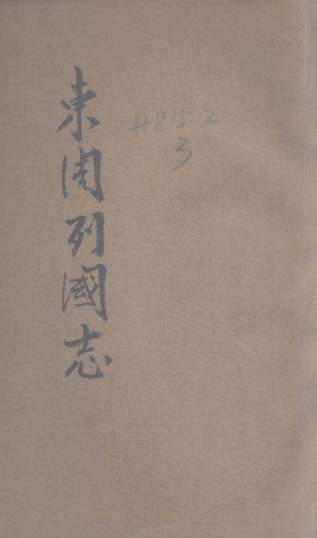 東周列國志
H815.2
.3